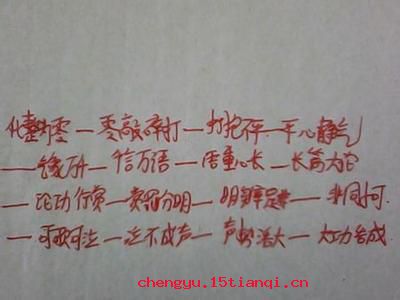 化整为零—零敲碎打—打抱不平—平心静气
—气象万千—千言万语—语重心长—长篇大论
—论功行赏—赏罚分明—明辨是非—非同小可
—可歌可泣—泣不成声—声势浩大—大功告成
chengyu.15tianqi.cn